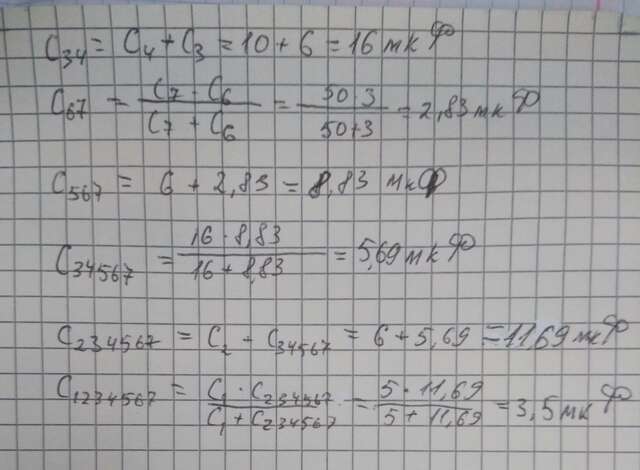 C₃₄ = C₄ + C₃ = 10 + 6 = 16 мкФ
C₆₇ = (C₇ · C₆)/(C₇ + C₆) = (50 · 3)/(50 + 3) = 2,83 мкФ
C₅₆₇ = 6 + 2,83 = 8,83 мкФ
C₃₄₅₆₇ = (16 · 8,83)/(16 + 8,83) = 5,69 мкФ
C₂₃₄₅₆₇ = C₂ + C₃₄₅₆₇ = 6 + 5,69 = 11,69 мкФ
C₁₂₃₄₅₆₇ = (C₁ · C₂₃₄₅₆₇)/(C₁ + C₂₃₄₅₆₇) = (5 · 11,69)/(5 + 11,69) = 3,5 мкФ